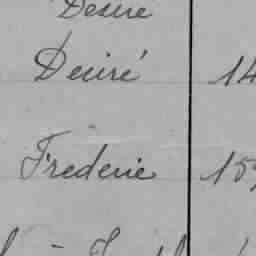 Desire
Desiré 14
Frederic 15